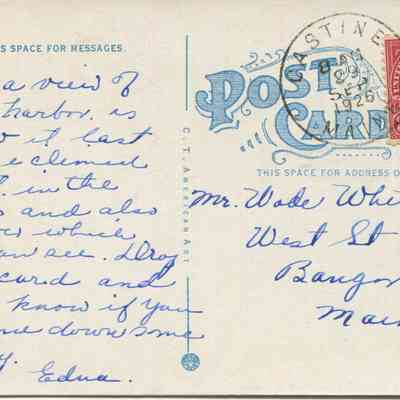 S SPACE FOR MESSAGES.
a view of
harbor. is
it last
climed
in the
s and also
ow which
an see. Drop
card and
know if you
me down some
Edna.
C. T. AMERICAN ART
POST CARD
CASTINE
8-AM
SEP
1926
THIS SPACE FOR ADDRESS O
Mr. Wade Whi
West St
Bangor
Mai